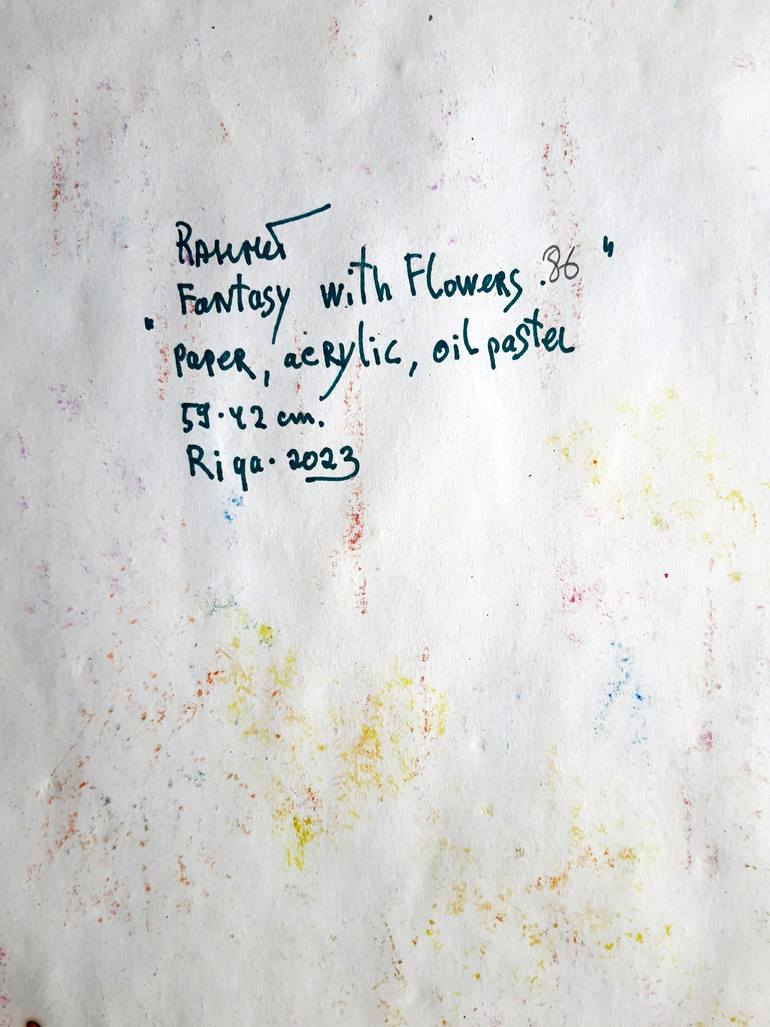 Fantasy with Flowers .86 "
" paper, acrylic, oil pastel
59.42 cm.
Riga. 2023